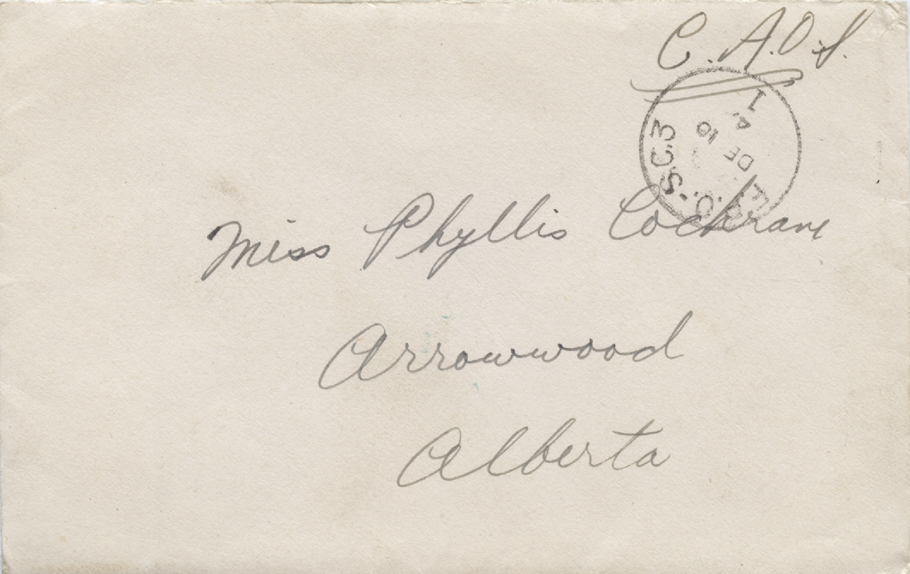 C.A.O.S.
F.P.O.-S.C.3
1
A
DE 10
Miss Phyllis Cochrane
Arrowwood
Alberta